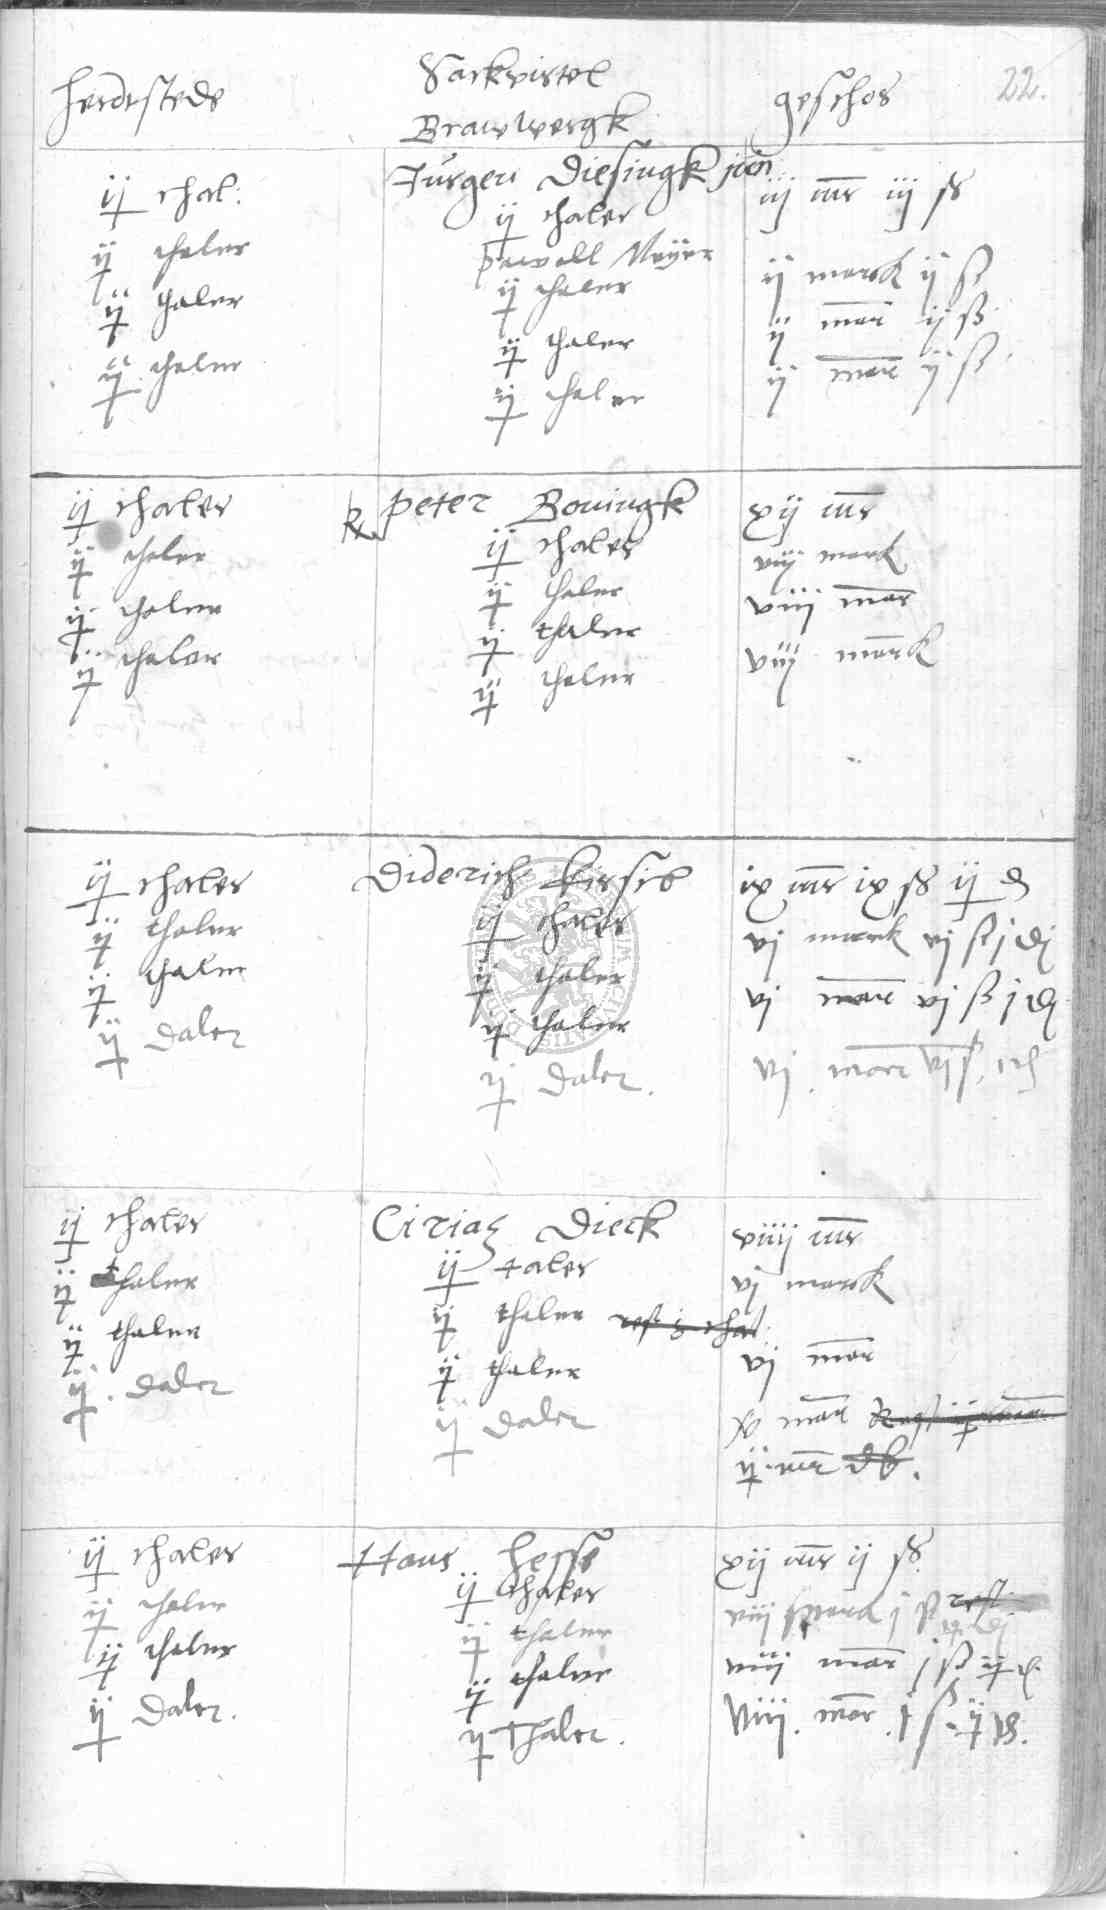 22.
Herdtstede Sackvirtel geschos
Brawwergk
Jurgen Diesingk jun
ij thal: ij thaler iij mr iij ß
Pawell Meyer
ij thaler ij thaler ij marck ij ß
ij thaler ij thaler ij mar ij ß
ij thaler ij thaler ij mar ij ß
Peter Bouingk
ij thaler ij thaler xij mr
ij thaler ij thaler viij marck
ij thaler ij thaler viij mar
ij thaler ij thaler viij marck
Diderich Kirsch
ij thaler ij thaler ix mr ix ß ij d
ij thaler ij thaler vj marck vj ß j d
ij thaler ij thaler vj mar vj ß j d
ij Daler ij Daler. vj. mar vj ß
Ciriac Dieck
ij thaler ij taler viiij mr
ij thaler ij thaler vj marck
ij thaler ij thaler vj mar
ij. Daler ij Daler mar
ij mr
Hans Hesse
ij thaler ij thaler xij mr ij ß
ij thaler ij thaler viij marck j ß
ij thaler ij thaler viij mar j ß ij d
ij Daler. ij Thaler. viij. mar. j ß. ij d.